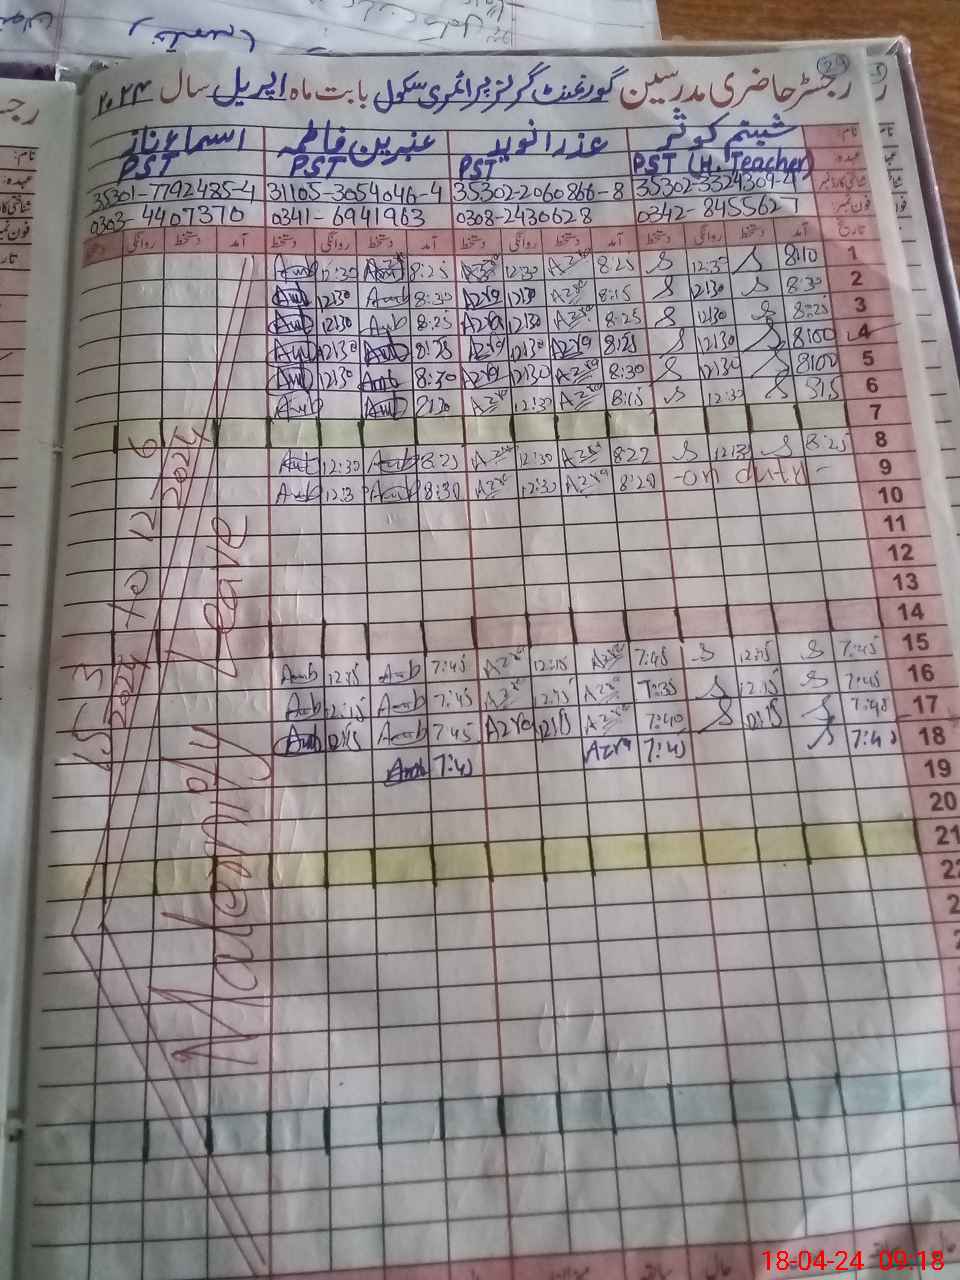 رجسٹر حاضری مدرسین گورنمنٹ گرلز پرائمری سکول بابت ماہ اپریل سال ۲۰۲۴
نام: شبنم کوثر عذرا نوید عنبرین فاطمہ اسماء ناز
عہدہ: PST (H. Teacher) PST PST PST
35302-3324309-4 35302-2060866-8 31105-3054046-4 35301-7792485-4
فون نمبر: 0342-8455627 0308-2430628 0341-6941963 0303-4407370
تاریخ آمد دستخط روانگی دستخط آمد دستخط روانگی دستخط آمد دستخط روانگی دستخط آمد دستخط روانگی دستخط
1 8:10 S 12:30 S 8:25 Azra 12:30 Azra 8:25 Amb 12:30 Amb
2 8:30 S 12:30 S 8:15 Azra 12:30 Azra 8:30 Amb 12:30 Amb
3 8:25 S 12:30 S 8:25 Azra 12:30 Azra 8:25 Amb 12:30 Amb
4 8:00 S 12:30 S 8:25 Azra 12:30 Azra 8:25 Amb 12:30 Amb
5 8:00 S 12:30 S 8:30 Azra 12:30 Azra 8:30 Amb 12:30 Amb
6 S 12:30 S 8:15 Azra 12:30 Azra Amb Amb
7
8 8:25 S 12:30 S Azra 12:30 Azra 8:25 Amb 12:30 Amb
9 -on duty- 8:20 Azra 12:30 Azra 8:30 Amb 12:30 Amb
10
11
12
13
14
15 7:45 S 12:15 S 7:45 Azra 12:15 Azra 7:45 Amb 12:15 Amb
16 7:45 S 12:15 S 7:35 Azra 12:15 Azra 7:45 Amb 12:15 Amb
17 S 12:15 S 7:40 Azra 12:15 Azra 7:45 Amb 12:15 Amb
18 7:40 S 7:40 Azra 7:40 Amb
19
20
21
22
Maternity Leave
15 3 2024 to 12 6 2024
18-04-24 09:18